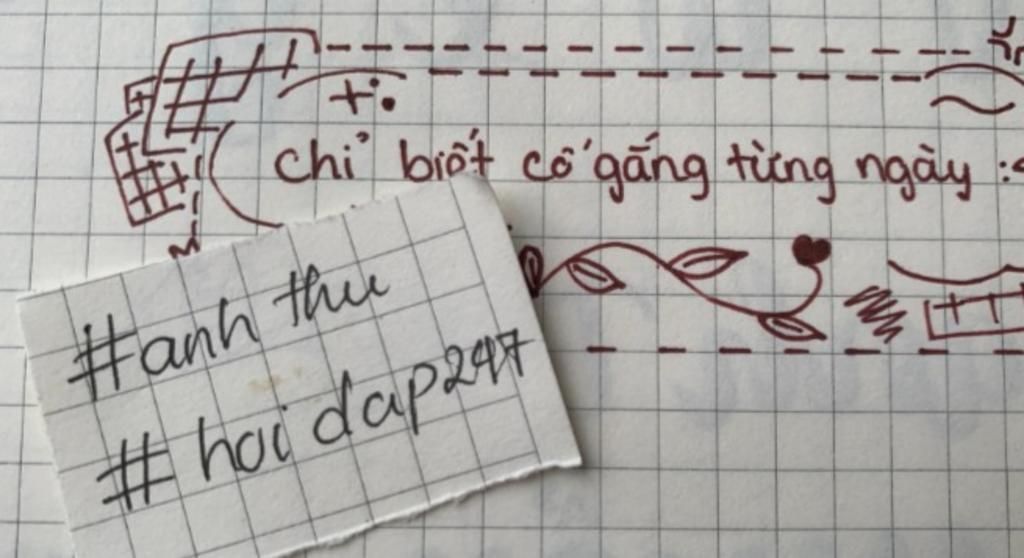 Chỉ biết cố gắng từng ngày :<
#anh thu
# hoi dap247